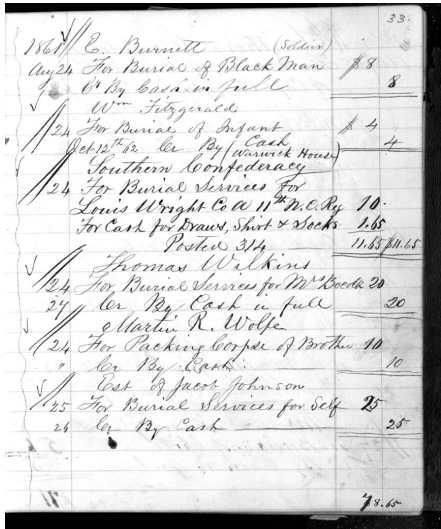 33.
1861 E. Burnett (Soldier)
Aug 24 For Burial of Black Man $ 8
" Cr By Cash in full 8
Wm Fitzgerald
24 For Burial of Infant $ 4
Oct 12th 62 Cr By (Cash Warwick House) 4
Southern Confederacy
24 For Burial Services for
Louis Wright Co A 11th N.C. Reg 10.
For Cash for Draws, Shirt & Socks 1.65
Posted 314 11.65 $11.65
Thomas Wilkins
24 For Burial Services for Mrs Bocock 20
27 Cr By Cash in full 20
Martin R. Wolfe
24 For Packing Corpse of Brother 10
" Cr By Cash 10
Est of Jacob Johnson
25 For Burial Services for Self 25
26 Cr By Cash 25
78.65